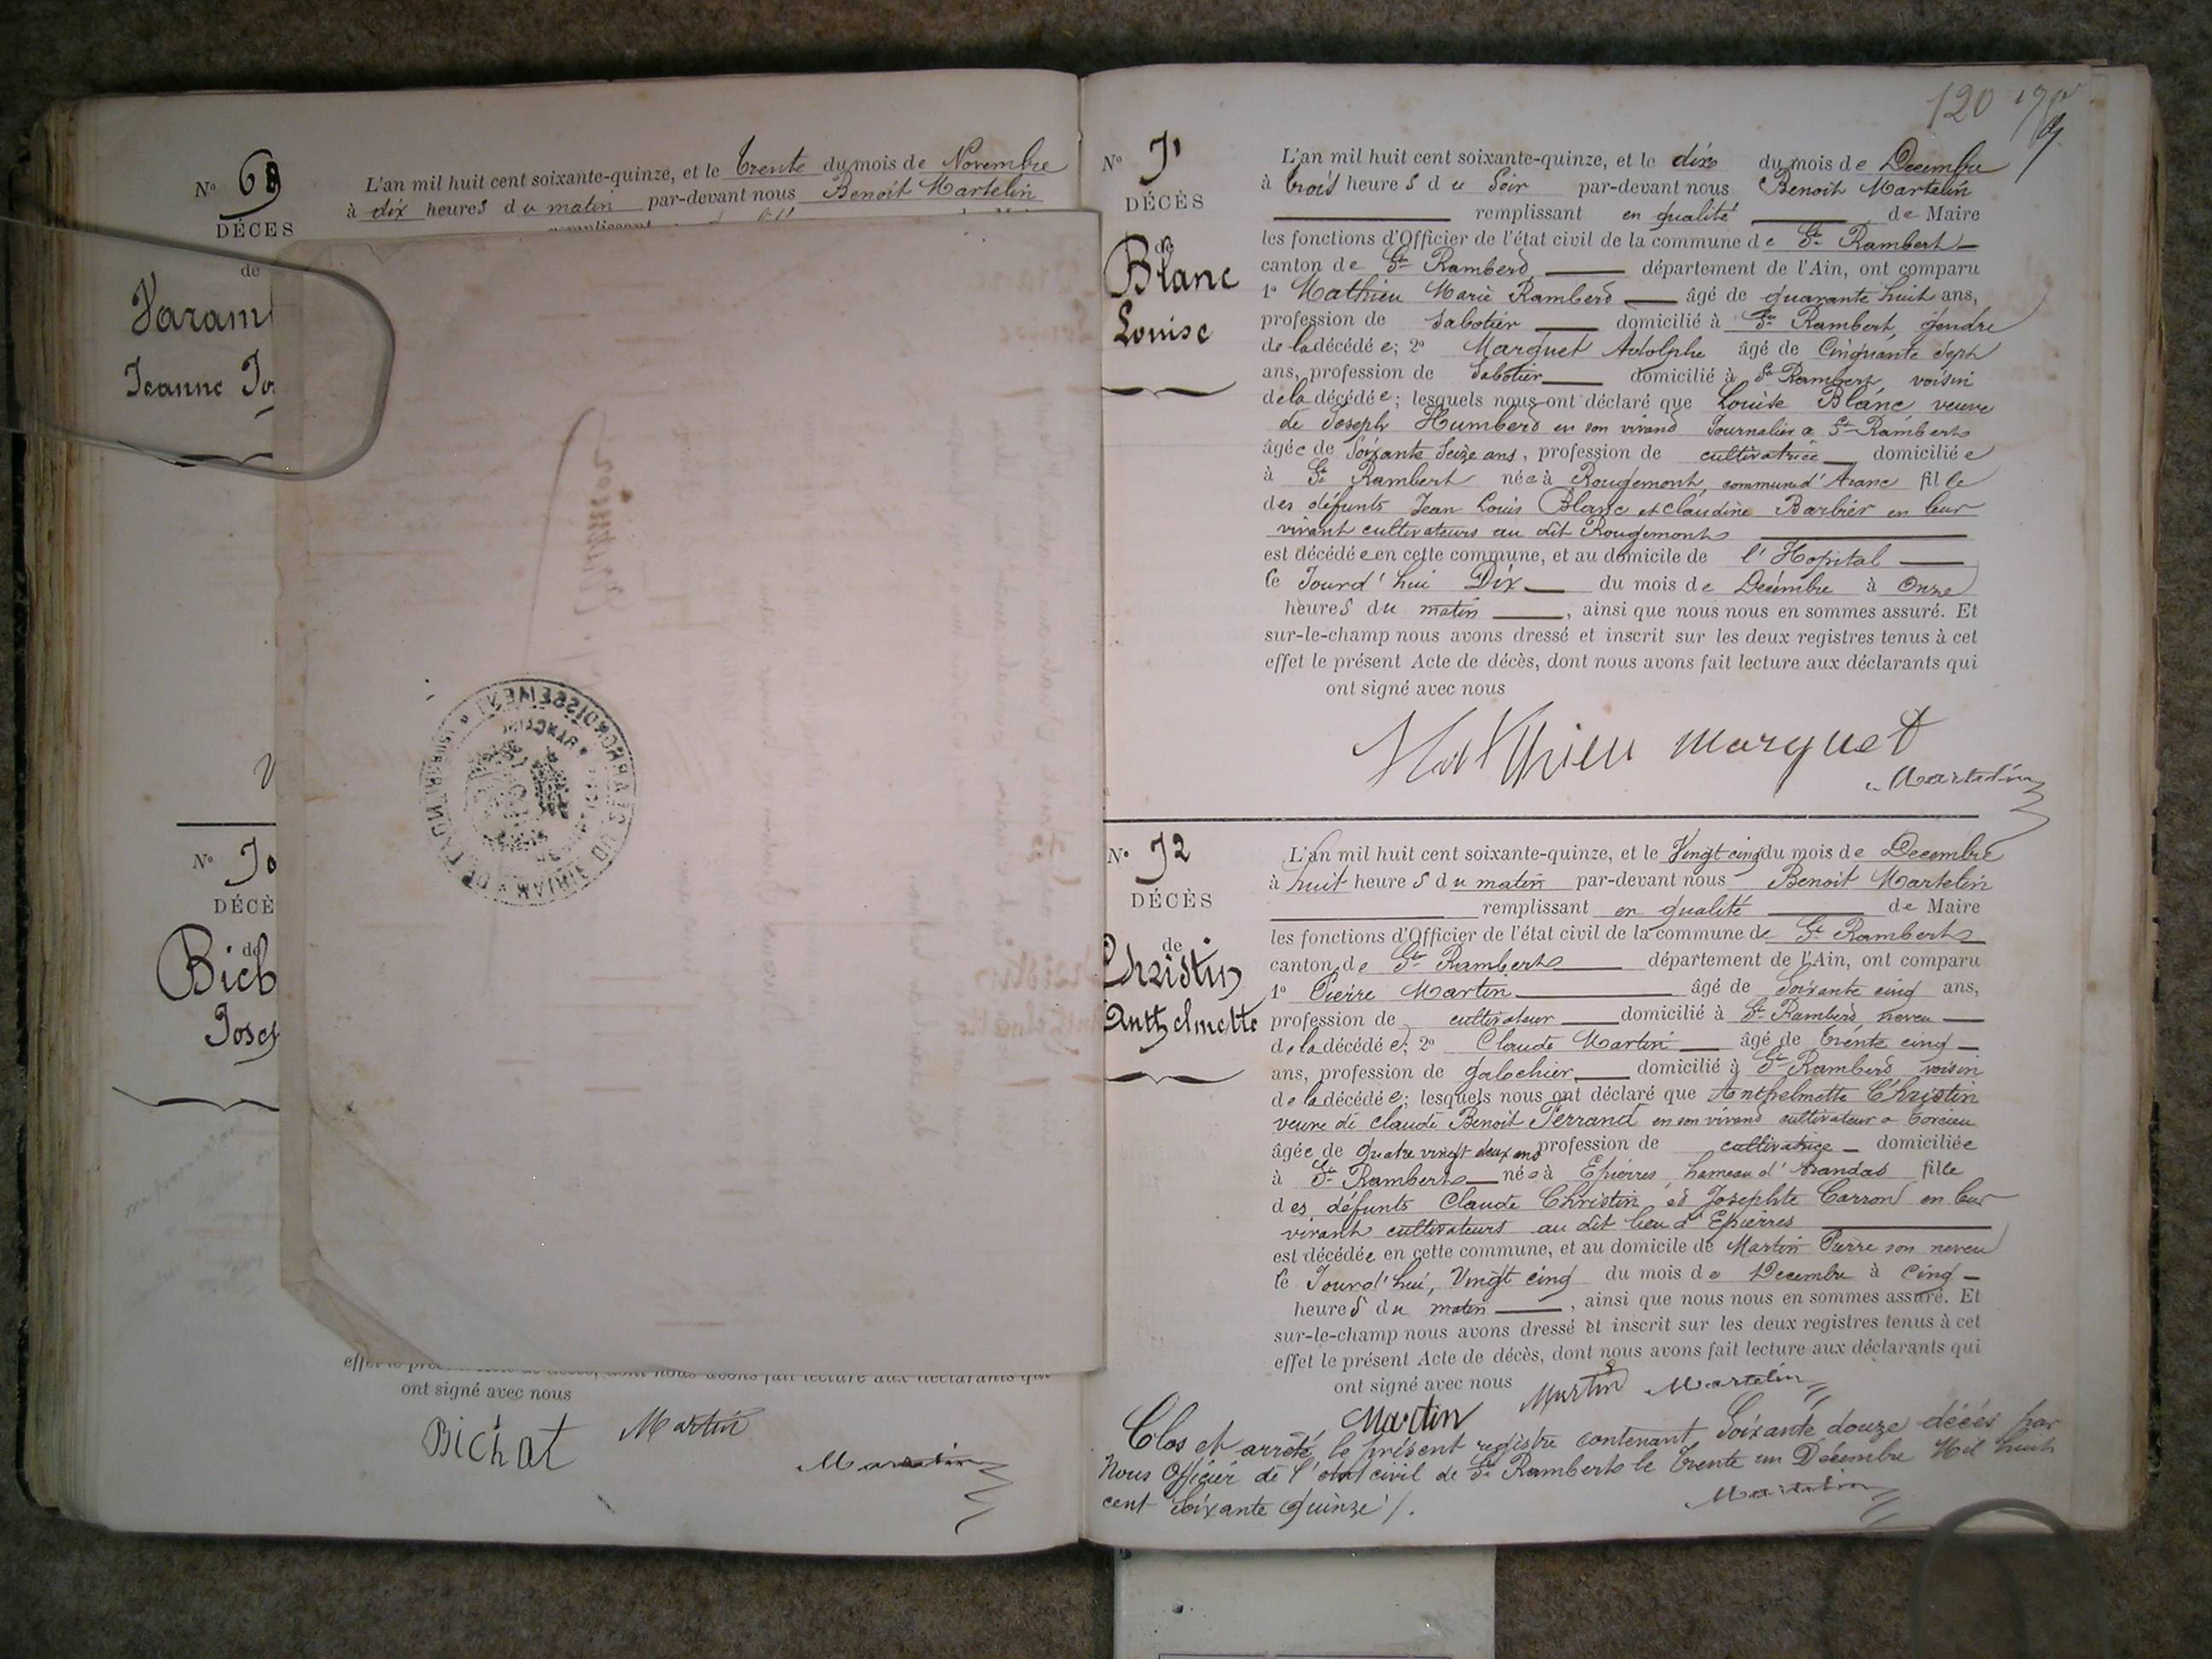 N° 69
DÉCES
de
Varam
Jeanne Jo
L'an mil huit cent soixante-quinze, et le trente du mois de Novembre
à dix heures du matin par-devant nous Benoit Martelin
N° 70
DÉCÈ
de
Bich
Josep
ont signé avec nous
Bichat Martin
Martelin
120
N° 71
DÉCÈS
de
Blanc
Louise
L'an mil huit cent soixante-quinze, et le dix du mois de Decembre
à trois heures du Soir par-devant nous Benoit Martelin
remplissant en qualité de Maire
les fonctions d'Officier de l'état civil de la commune de St Rambert
canton de St Rambert département de l'Ain, ont comparu
1° Mathieu Marie Rambert âgé de quarante huit ans,
profession de Sabotier domicilié à St Rambert, gendre
de la décédée; 2° Marquet Adolphe âgé de Cinquante Sept
ans, profession de Sabotier domicilié à St Rambert, voisin
de la décédée; lesquels nous ont déclaré que Louise Blanc veuve
de Joseph Humbert en son vivant Journalier a St Rambert
âgée de Soixante Seize ans, profession de cultivatrice domiciliée
à St Rambert née à Rougemont, commune d'Aranc fille
des défunts Jean Louis Blanc et Claudine Barbier en leur
vivant cultivateurs au dit Rougemont
est décédée en cette commune, et au domicile de l'Hopital
le Jourd'hui Dix du mois de Decembre à Onze
heures du matin, ainsi que nous nous en sommes assuré. Et
sur-le-champ nous avons dressé et inscrit sur les deux registres tenus à cet
effet le présent Acte de décès, dont nous avons fait lecture aux déclarants qui
ont signé avec nous
Matthieu marquet
Martelin
N° 72
DÉCÈS
de
Christin
Anthelmette
L'an mil huit cent soixante-quinze, et le Vingt cinq du mois de Decembre
à huit heures du matin par-devant nous Benoit Martelin
remplissant en qualité de Maire
les fonctions d'Officier de l'état civil de la commune de St Rambert
canton de St Rambert département de l'Ain, ont comparu
1° Pierre Martin âgé de Soixante cinq ans,
profession de cultivateur domicilié à St Rambert neveu
de la décédée; 2° Claude Martin âgé de trente cinq
ans, profession de galochier domicilié à St Rambert voisin
de la décédée; lesquels nous ont déclaré que Anthelmette Christin
veuve de claude Benoit Ferrand en son vivant cultivateur a torcieu
âgée de quatre vingt deux ans profession de cultivatrice domiciliée
à St Rambert née à Epierres, hameau d'Arandas fille
des défunts Claude Christin et Josephte Carron en leur
vivant cultivateurs au dit lieu d'Epierres
est décédée en cette commune, et au domicile de Martin Pierre son neveu
le Jourd'hui, Vingt cinq du mois de Decembre à Cinq
heures du matin, ainsi que nous nous en sommes assuré. Et
sur-le-champ nous avons dressé et inscrit sur les deux registres tenus à cet
effet le présent Acte de décès, dont nous avons fait lecture aux déclarants qui
ont signé avec nous Martin Martelin
Martin
Clos et arrêté le présent registre contenant Soixante douze décès par
Nous Officier de l'état civil de St Rambert le trente un Décembre Mil huit
cent Soixante Quinze /.
Martelin